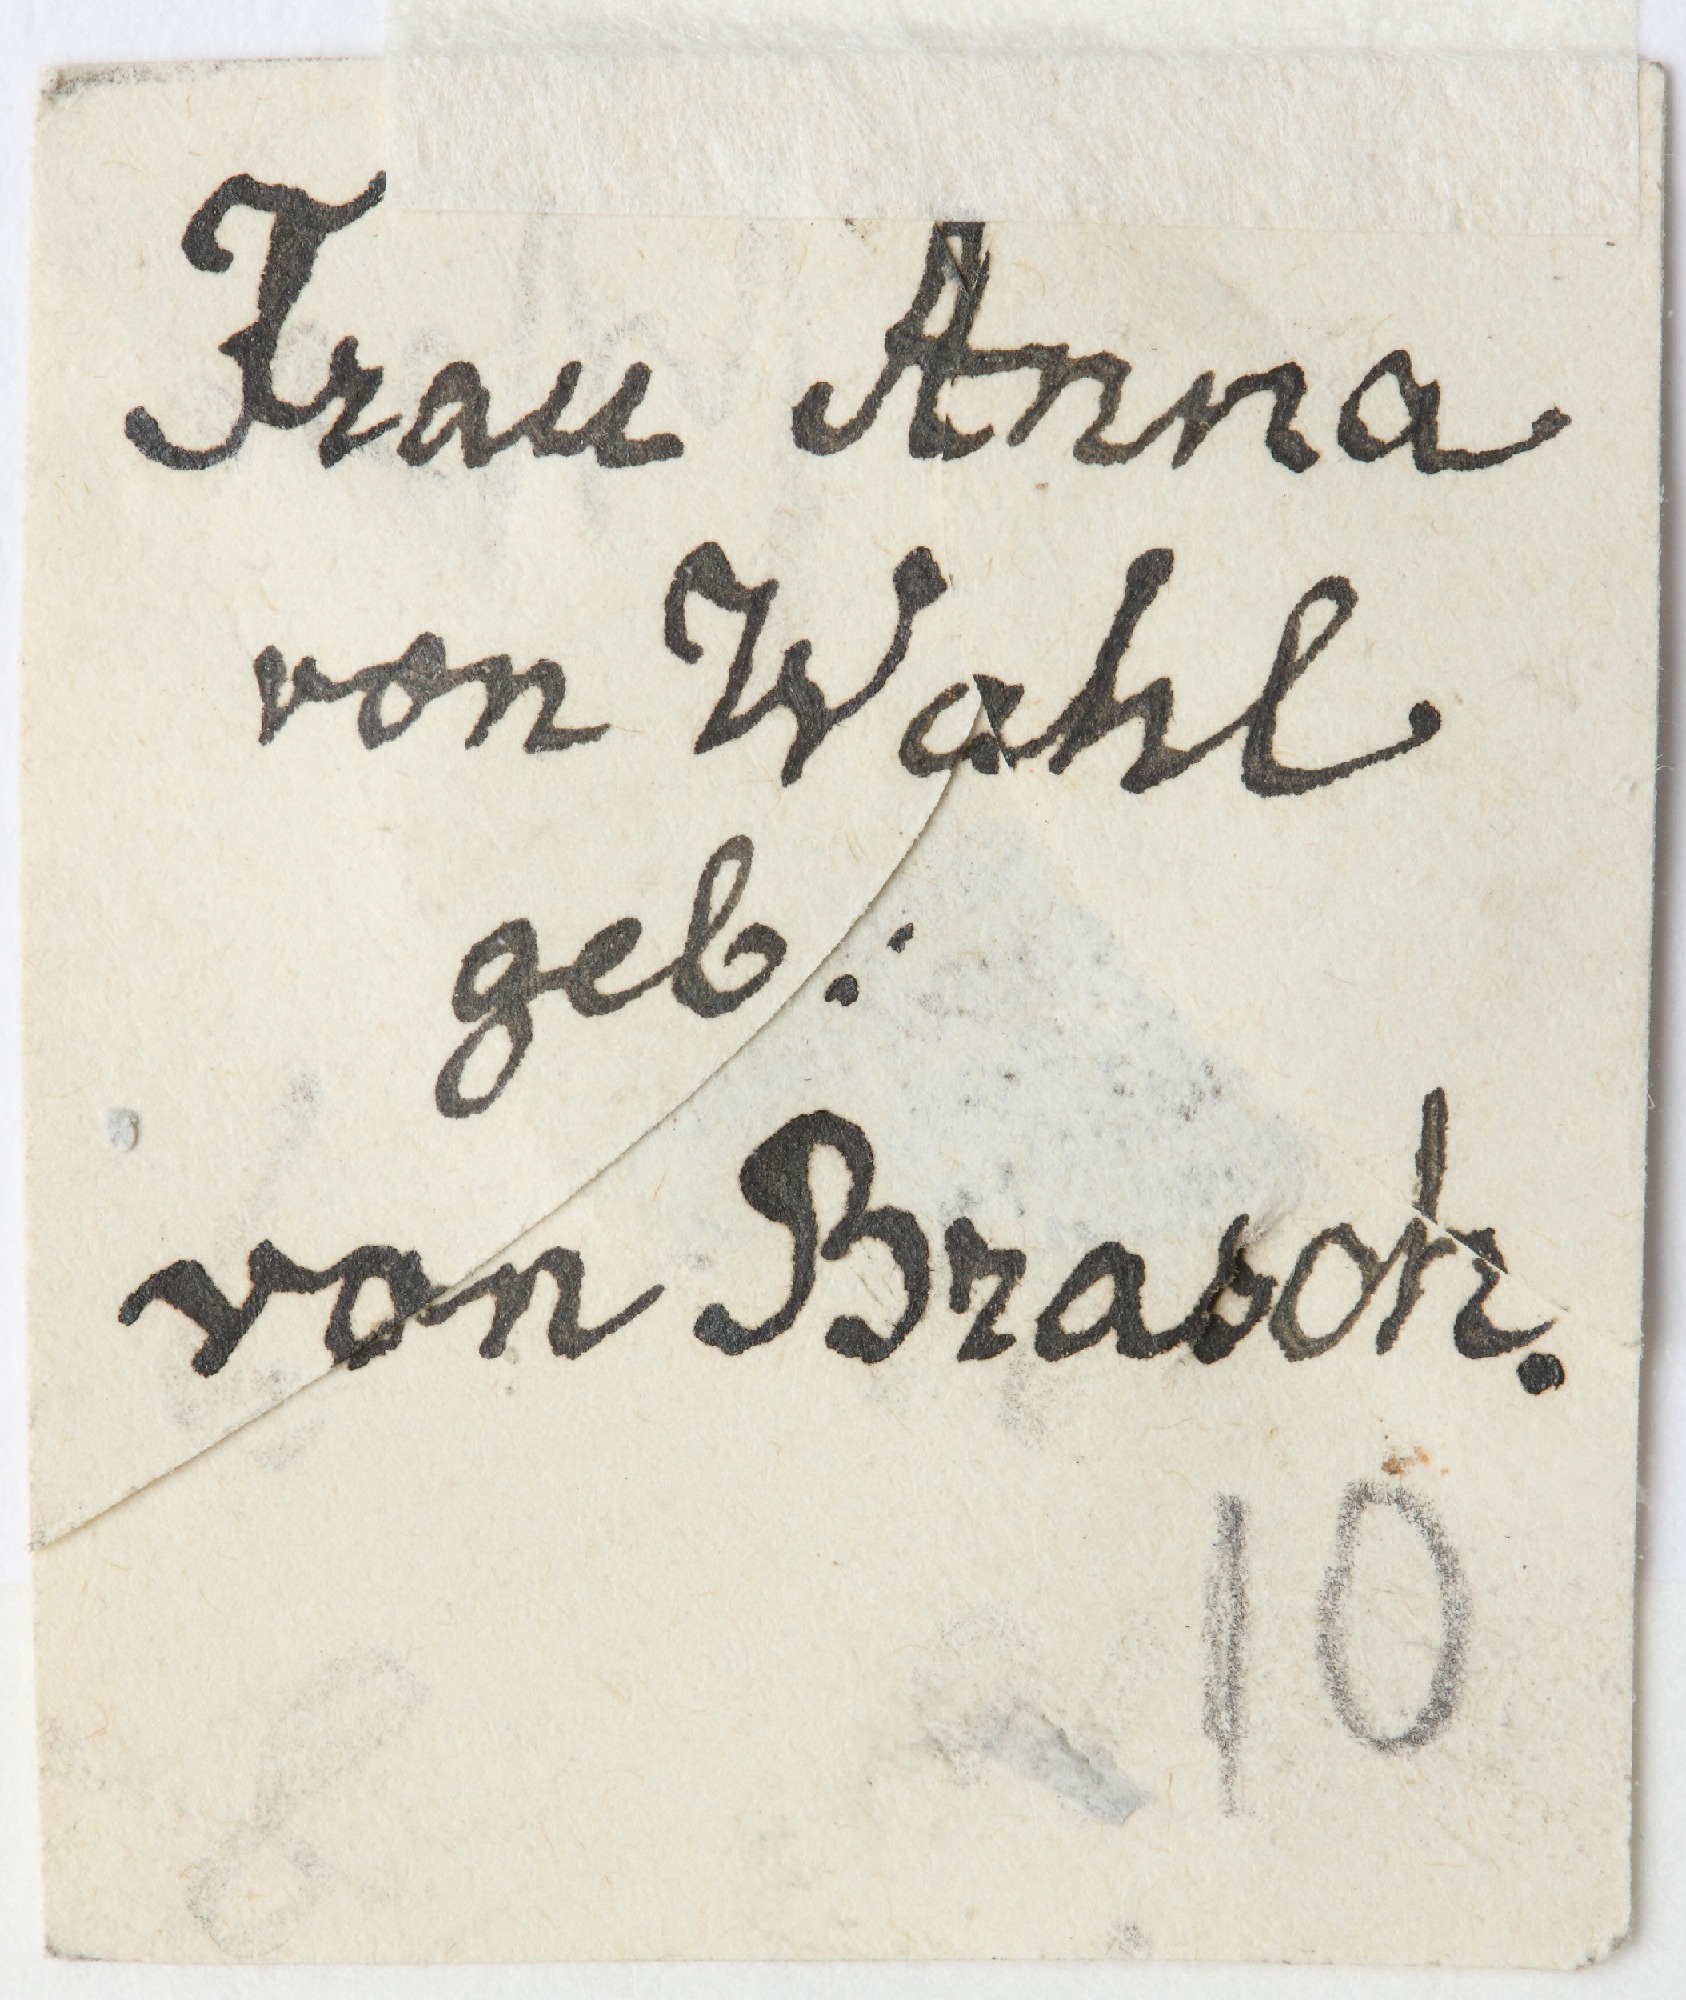 Frau Anna
von Wahl
geb:
von Brasch.
10